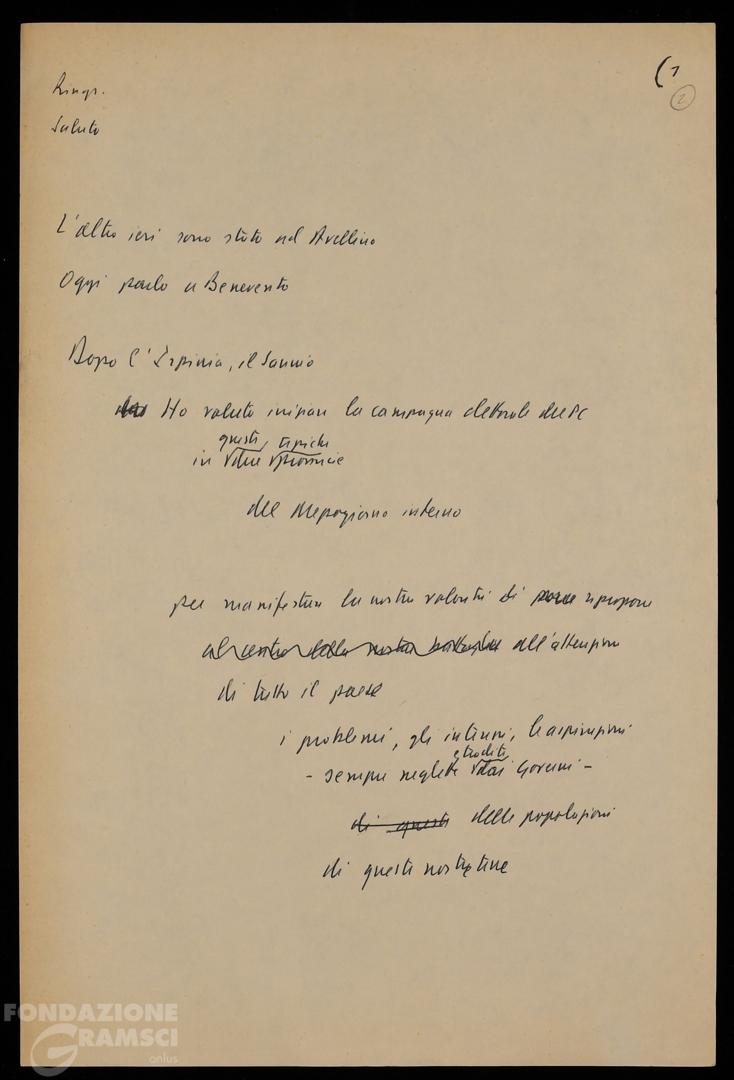 (1
2
Ringr.
Saluto
L'altro ieri sono stato ad Avellino
Oggi parlo a Benevento
Dopo l'Irpinia, il Sannio
Ho voluto iniziare la campagna elettorale del PC
queste tipiche
in due province
del Mezzogiorno interno
per manifestare la nostra volontà di porre riproporre
al centro della nostra battaglia all'attenzione
di tutto il paese
i problemi, gli interessi, le aspirazioni
e traditi
- sempre negletti dai Governi -
di queste delle popolazioni
di queste nostre terre
FONDAZIONE
GRAMSCI
onlus